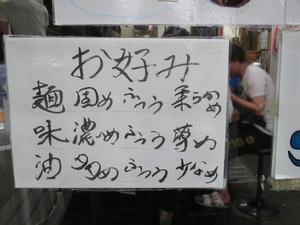 お好み
麺 固め ふつう 柔らかめ
味 濃いめ ふつう 薄め
油 多め ふつう 少なめ